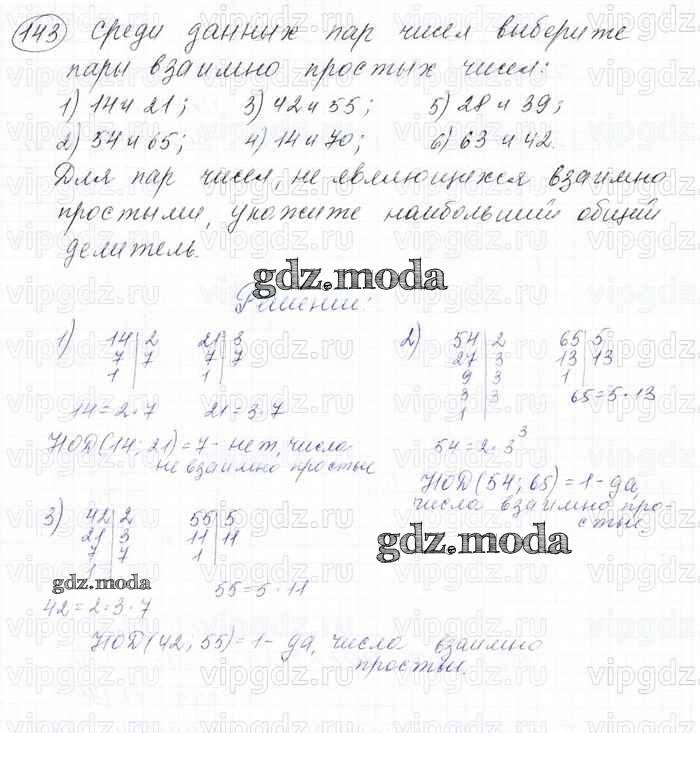 143 Среди данных пар чисел выберите
пары взаимно простых чисел:
1) 14 и 21; 3) 42 и 55; 5) 28 и 39;
2) 54 и 65; 4) 14 и 70; 6) 63 и 42.
Для пар чисел, не являющихся взаимно
простыми, укажите наибольший общий
делитель.
gdz.moda
Решение:
1) 14 | 2 21 | 3
7 | 7 7 | 7
1 | 1 |
14 = 2 · 7 21 = 3 · 7
НОД (14; 21) = 7 - нет, числа
не взаимно простые
2) 54 | 2 65 | 5
27 | 3 13 | 13
9 | 3 1 |
3 | 3 65 = 5 · 13
1 |
54 = 2 · 3³
НОД (54; 65) = 1 - да,
числа взаимно про-
стые.
3) 42 | 2 55 | 5
21 | 3 11 | 11
7 | 7 1 |
1 |
gdz.moda
gdz.moda
42 = 2 · 3 · 7 55 = 5 · 11
НОД (42; 55) = 1 - да, числа взаимно
простые.
vipgdz.ru